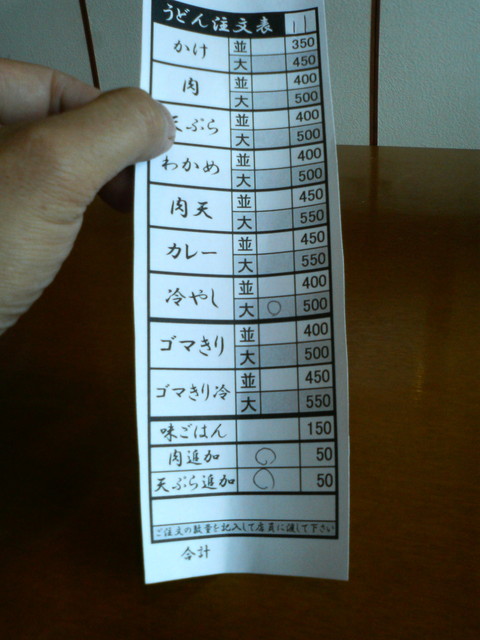 うどん注文表 11
かけ 並 350
大 450
肉 並 400
大 500
天ぷら 並 400
大 500
わかめ 並 400
大 500
肉天 並 450
大 550
カレー 並 450
大 550
冷やし 並 400
大 ○ 500
ゴマきり 並 400
大 500
ゴマきり冷 並 450
大 550
味ごはん 150
肉追加 ○ 50
天ぷら追加 ○ 50
ご注文の数量を記入して店員に渡して下さい
合計